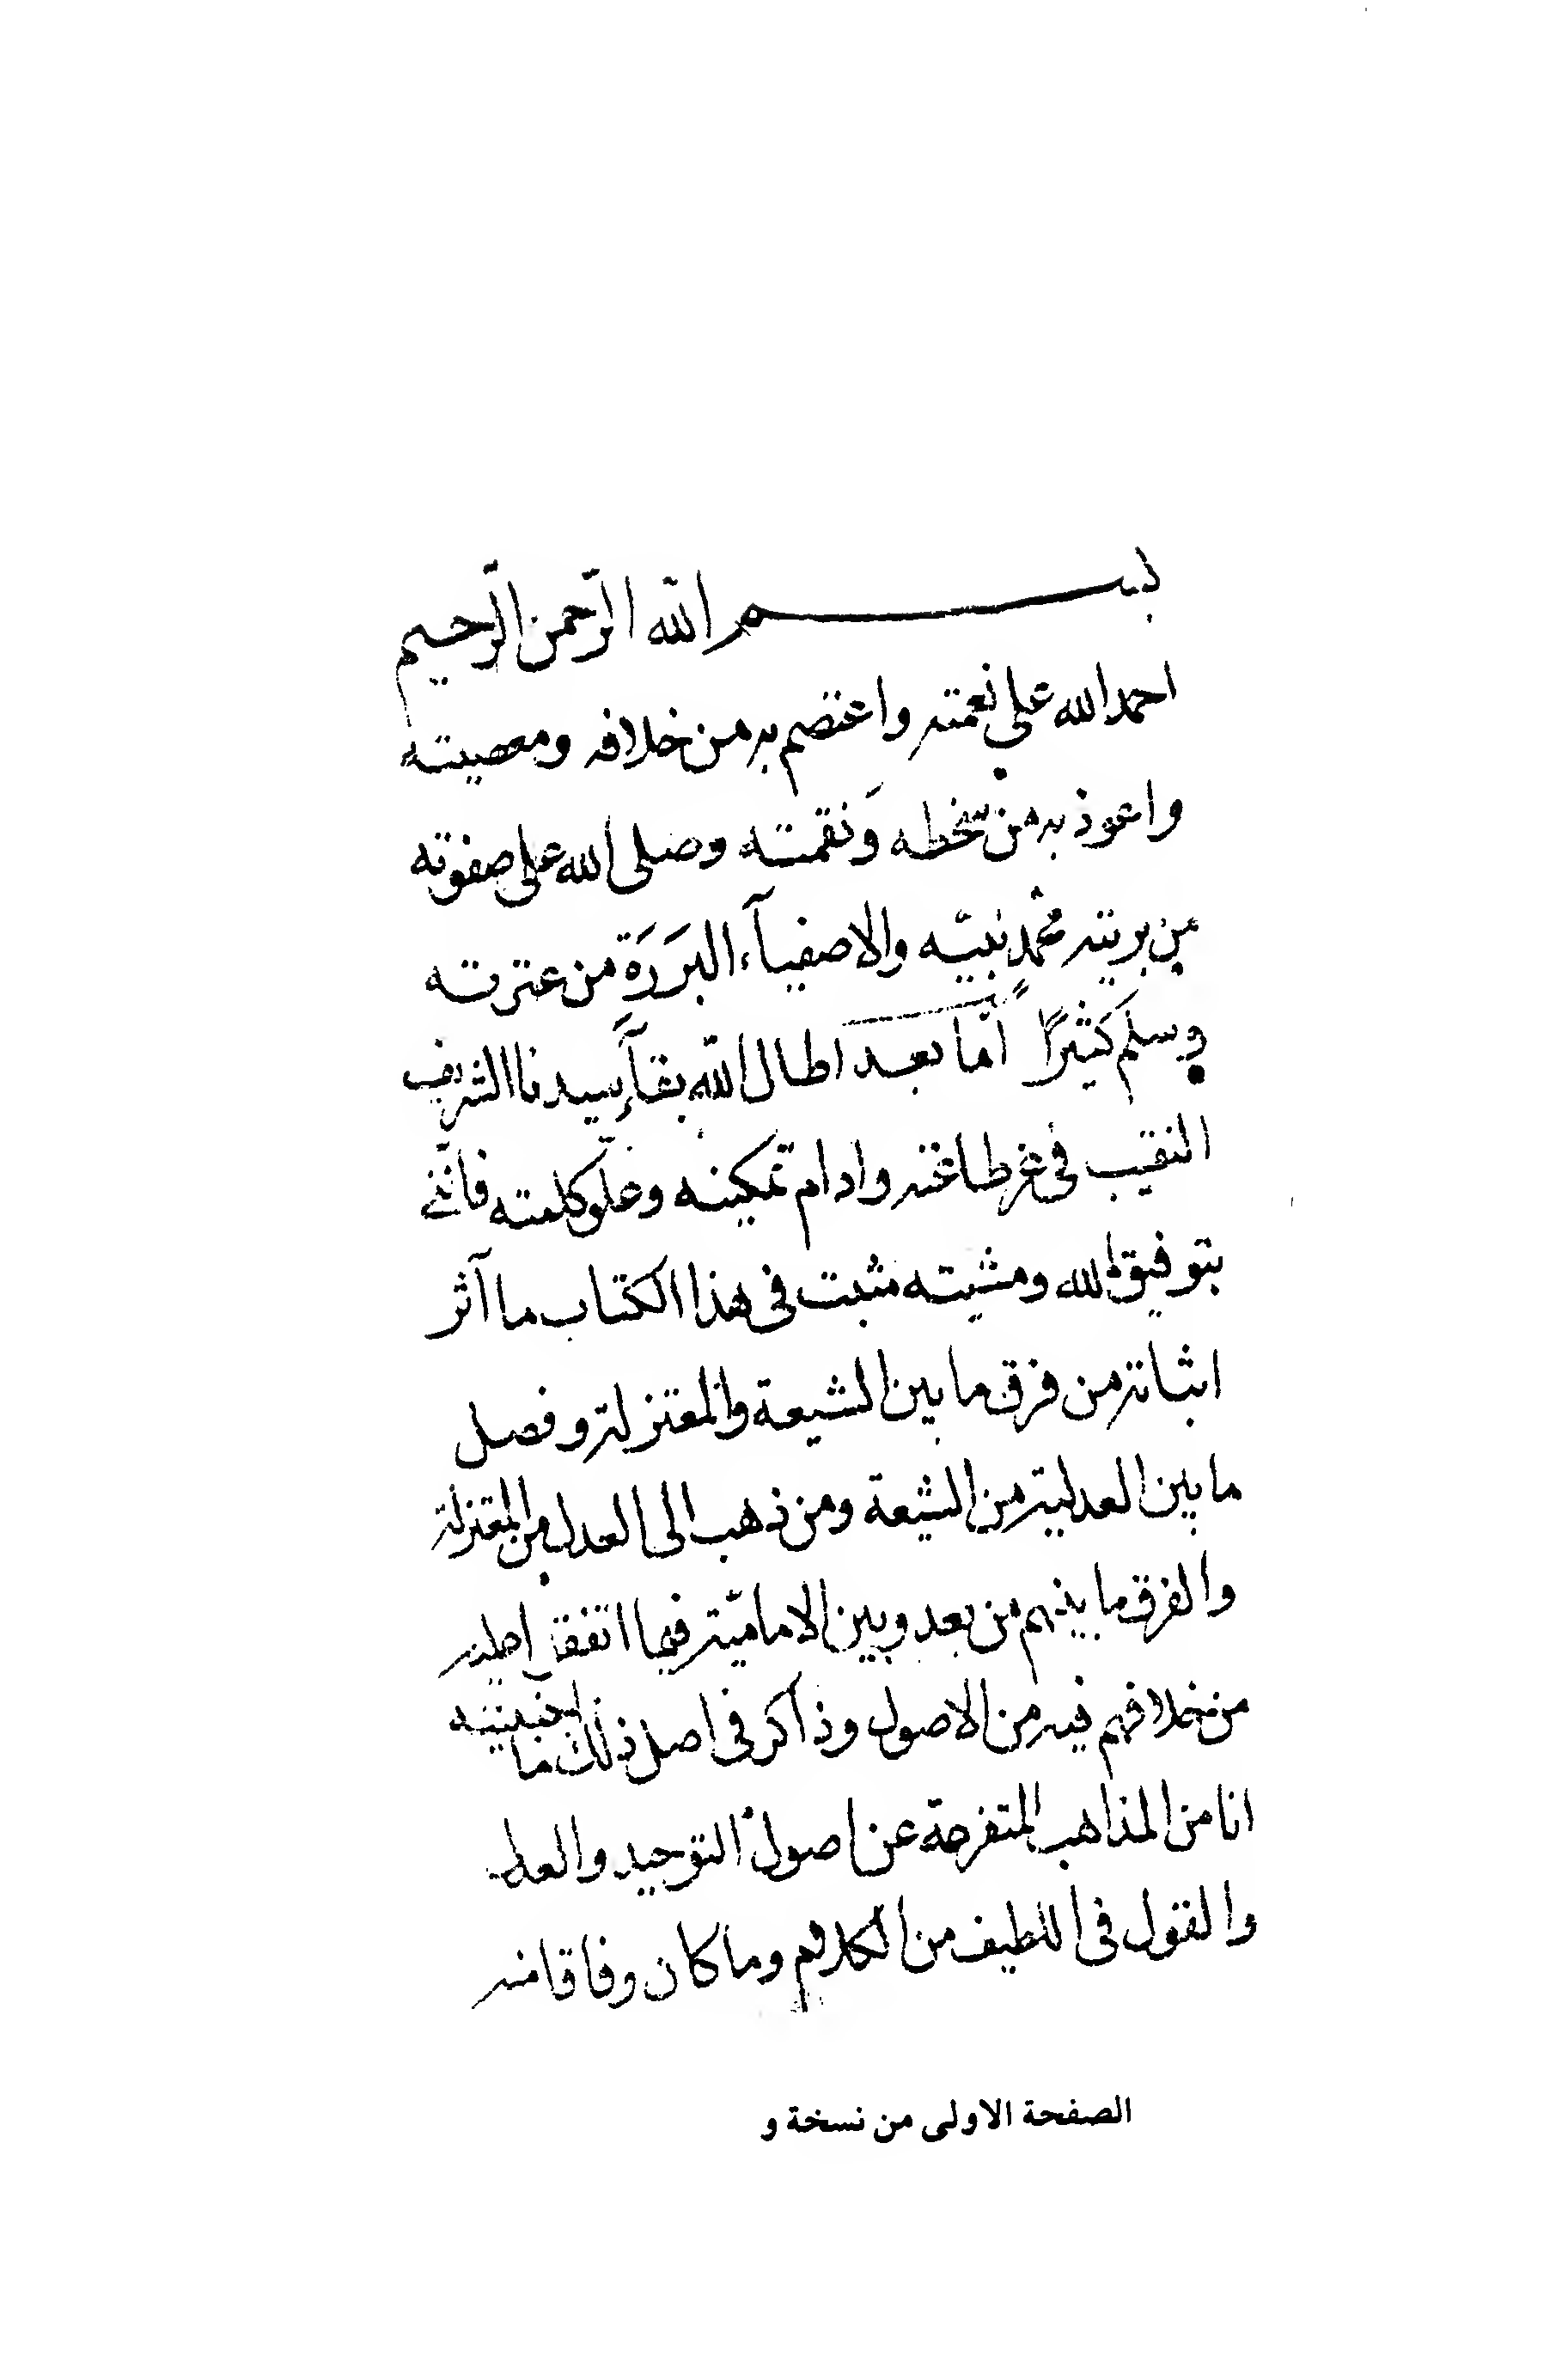 بسم الله الرّحمن الرّحيم
احمد الله على نعمته واعتصم به من خلافه ومعصيته
واعوذ به من سخطه وَنقمته وصلى الله على صفوته
من بريته محُمدٍ نبيّه والاصفيآء البرَرَة من عترته
وسلم كثيرًا امّا بعد اطال الله بقآء سيدنا الشريف
النقيب فى عز طاعته وادام تمكينه وعلو كلمته فانّنى
بتوفيق الله ومشيته مثبت فى هذا الكتاب ما آثر
اثباته من فرق ما بين الشيعة والمعتزلة وفصل
ما بين العدلية من الشيعة ومن ذهب الى العدل من المعتزلة
والفرق ما بينهم من بعد وبين الاماميّة فيما اتفقوا عليه
من خلافهم فيه من الاصول وذاكر فى اصل ذلك ما اجتبيته
انا من المذاهب المتفرعة عن اصول التوحيد والعدل
والقول فى اللطيف من الكلام وما كان وفاقا منه
الصفحة الاولى من نسخة و